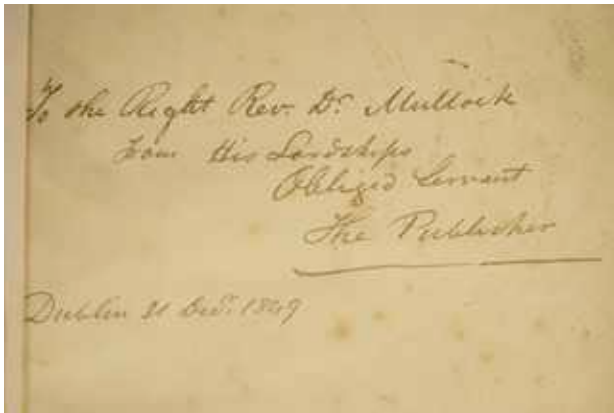 To the Right Rev. Dr Mullock
from His Lordships
Obliged Servant
The Publisher
Dublin 21 Decr. 1849